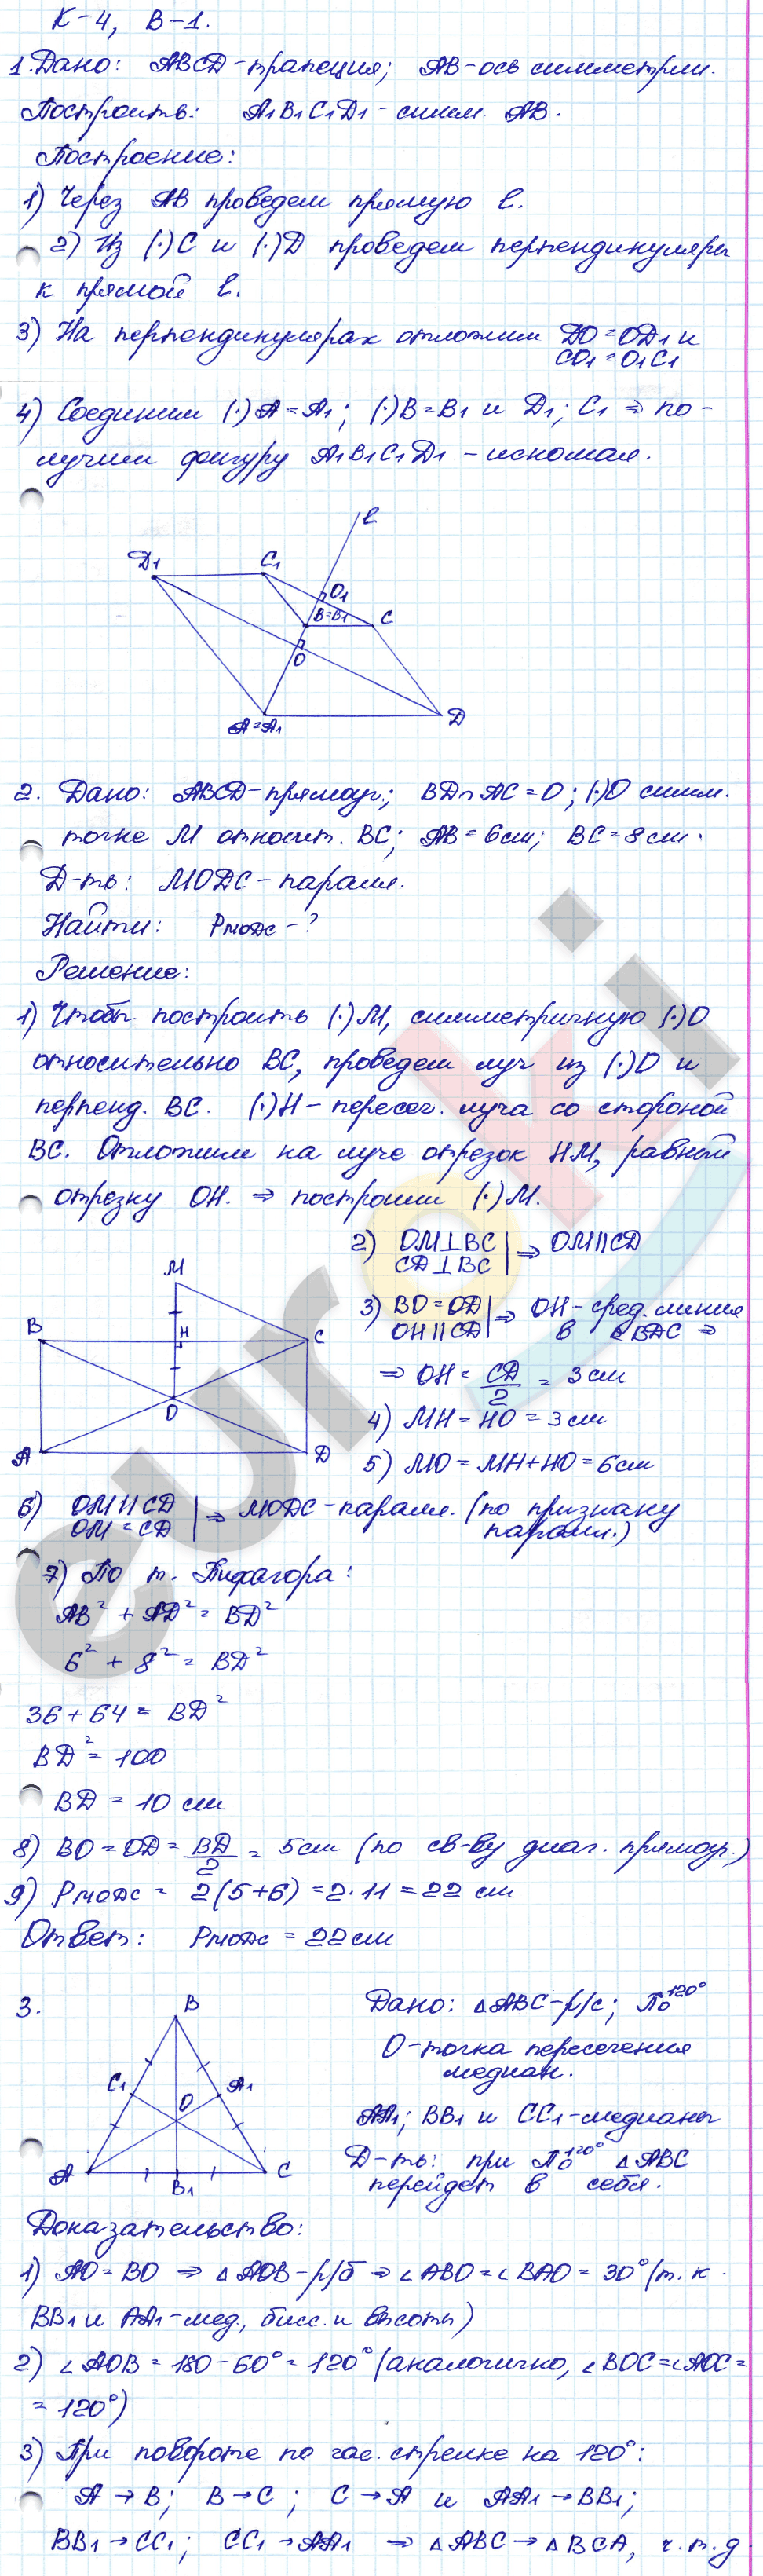 К-4, В-1.
1. Дано: ABCD-трапеция; AB-ось симметрии.
Построить: A₁B₁C₁D₁-симм. AB.
Построение:
1) Через AB проведем прямую l.
2) Из (·)C и (·)D проведем перпендикуляры
к прямой l.
3) На перпендикулярах отложим DO=OD₁ и
CO₁=O₁C₁
4) Соединим (·)A=A₁; (·)B=B₁ и D₁; C₁ ⇒ по-
лучим фигуру A₁B₁C₁D₁ - искомая.
l
D₁ C₁
O₁
B=B₁ C
O
A=A₁ D
2. Дано: ABCD-прямоуг; BD∩AC=O; (·)O симм.
точке M относит. BC; AB=6см; BC=8см.
Д-ть: MODC-паралл.
Найти: PMODC-?
Решение:
1) Чтобы построить (·)M, симметричную (·)O
относительно BC, проведем луч из (·)O и
перпенд. BC. (·)H-пересеч. луча со стороной
BC. Отложим на луче отрезок HM, равный
отрезку OH. ⇒ построим (·)M.
2) OM⊥BC
CD⊥BC | ⇒ OM∥CD
M
B H C
O
A D
3) BO=OD
OH∥CD | ⇒ OH-сред. линия
в △BDC ⇒
⇒ OH = CD/2 = 3см
4) MH=HO=3см
5) MO=MH+HO=6см
6) OM∥CD
OM=CD | ⇒ MODC-паралл. (по признаку
паралл.)
7) По т. Пифагора:
AB² + AD² = BD²
6² + 8² = BD²
36+64 = BD²
BD² = 100
BD = 10 см
8) BO=OD= BD/2 = 5см (по св-ву диаг. прямоуг.)
9) PMODC = 2(5+6) = 2·11 = 22 см
Ответ: PMODC = 22см
3.
B
C₁ O A₁
A B₁ C
Дано: △ABC-р/с; По¹²⁰°
O-точка пересечения
медиан.
AA₁; BB₁ и CC₁-медианы
Д-ть: при По¹²⁰° △ABC
перейдет в себя.
Доказательство:
1) AO=BO ⇒ △AOB-р/б ⇒ ∠ABO=∠BAO=30° (т.к.
BB₁ и AA₁-мед, бисс. и высоты)
2) ∠AOB = 180-60°=120° (аналогично, ∠BOC=∠AOC=
=120°)
3) При повороте по час. стрелке на 120°:
A→B; B→C; C→A и AA₁→BB₁;
BB₁→CC₁; CC₁→AA₁ ⇒ △ABC→△BCA, ч.т.д.
euroki